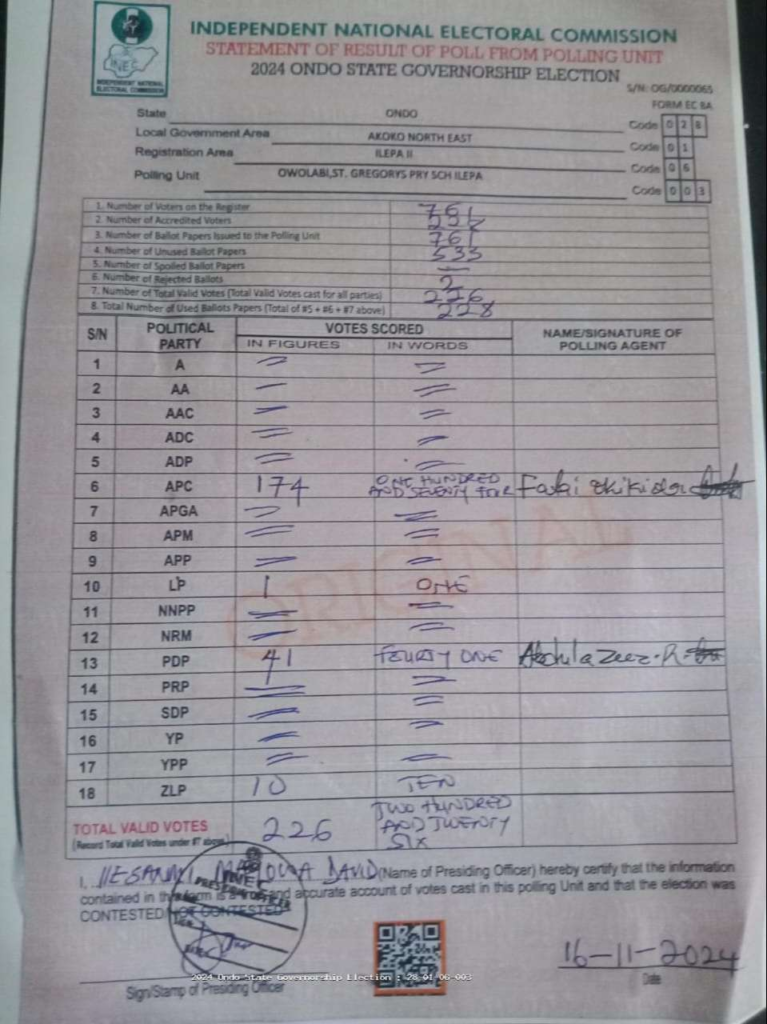 INDEPENDENT NATIONAL ELECTORAL COMMISSION
STATEMENT OF RESULT OF POLL FROM POLLING UNIT
2024 ONDO STATE GOVERNORSHIP ELECTION
INEC
INDEPENDENT NATIONAL
ELECTORAL COMMISSION
S/N: OG/0000065
FORM EC 8A
State ONDO Code 0 2 8
Local Government Area AKOKO NORTH EAST Code 0 1
Registration Area ILEPA II Code 0 6
Polling Unit OWOLABI,ST. GREGORYS PRY SCH ILEPA Code 0 0 3
1. Number of Voters on the Register 761
2. Number of Accredited Voters
3. Number of Ballot Papers Issued to the Polling Unit 761
4. Number of Unused Ballot Papers 533
5. Number of Spoiled Ballot Papers —
6. Number of Rejected Ballots 2
7. Number of Total Valid Votes (Total Valid Votes cast for all parties) 226
8. Total Number of Used Ballots Papers (Total of #5 + #6 + #7 above) 228
S/N POLITICAL PARTY VOTES SCORED NAME/SIGNATURE OF POLLING AGENT
IN FIGURES IN WORDS
1 A
2 AA
3 AAC
4 ADC
5 ADP
6 APC 174 ONE HUNDRED AND SEVENTY FOUR
7 APGA
8 APM
9 APP
10 LP 1 ONE
11 NNPP
12 NRM
13 PDP 41 FOURTY ONE Abdulazeez. R.
14 PRP
15 SDP
16 YP
17 YPP
18 ZLP 10 TEN
TOTAL VALID VOTES 226 TWO HUNDRED AND TWENTY SIX
(Record Total Valid Votes under #7 above)
ORIGINAL
I, DAVID (Name of Presiding Officer) hereby certify that the information
contained in this form is a true and accurate account of votes cast in this polling Unit and that the election was
CONTESTED/NOT CONTESTED
INEC
PRESIDING OFFICER
16-11-2024
2024 Ondo State Governorship Election : 28-01-06-003
Date
Sign/Stamp of Presiding Officer